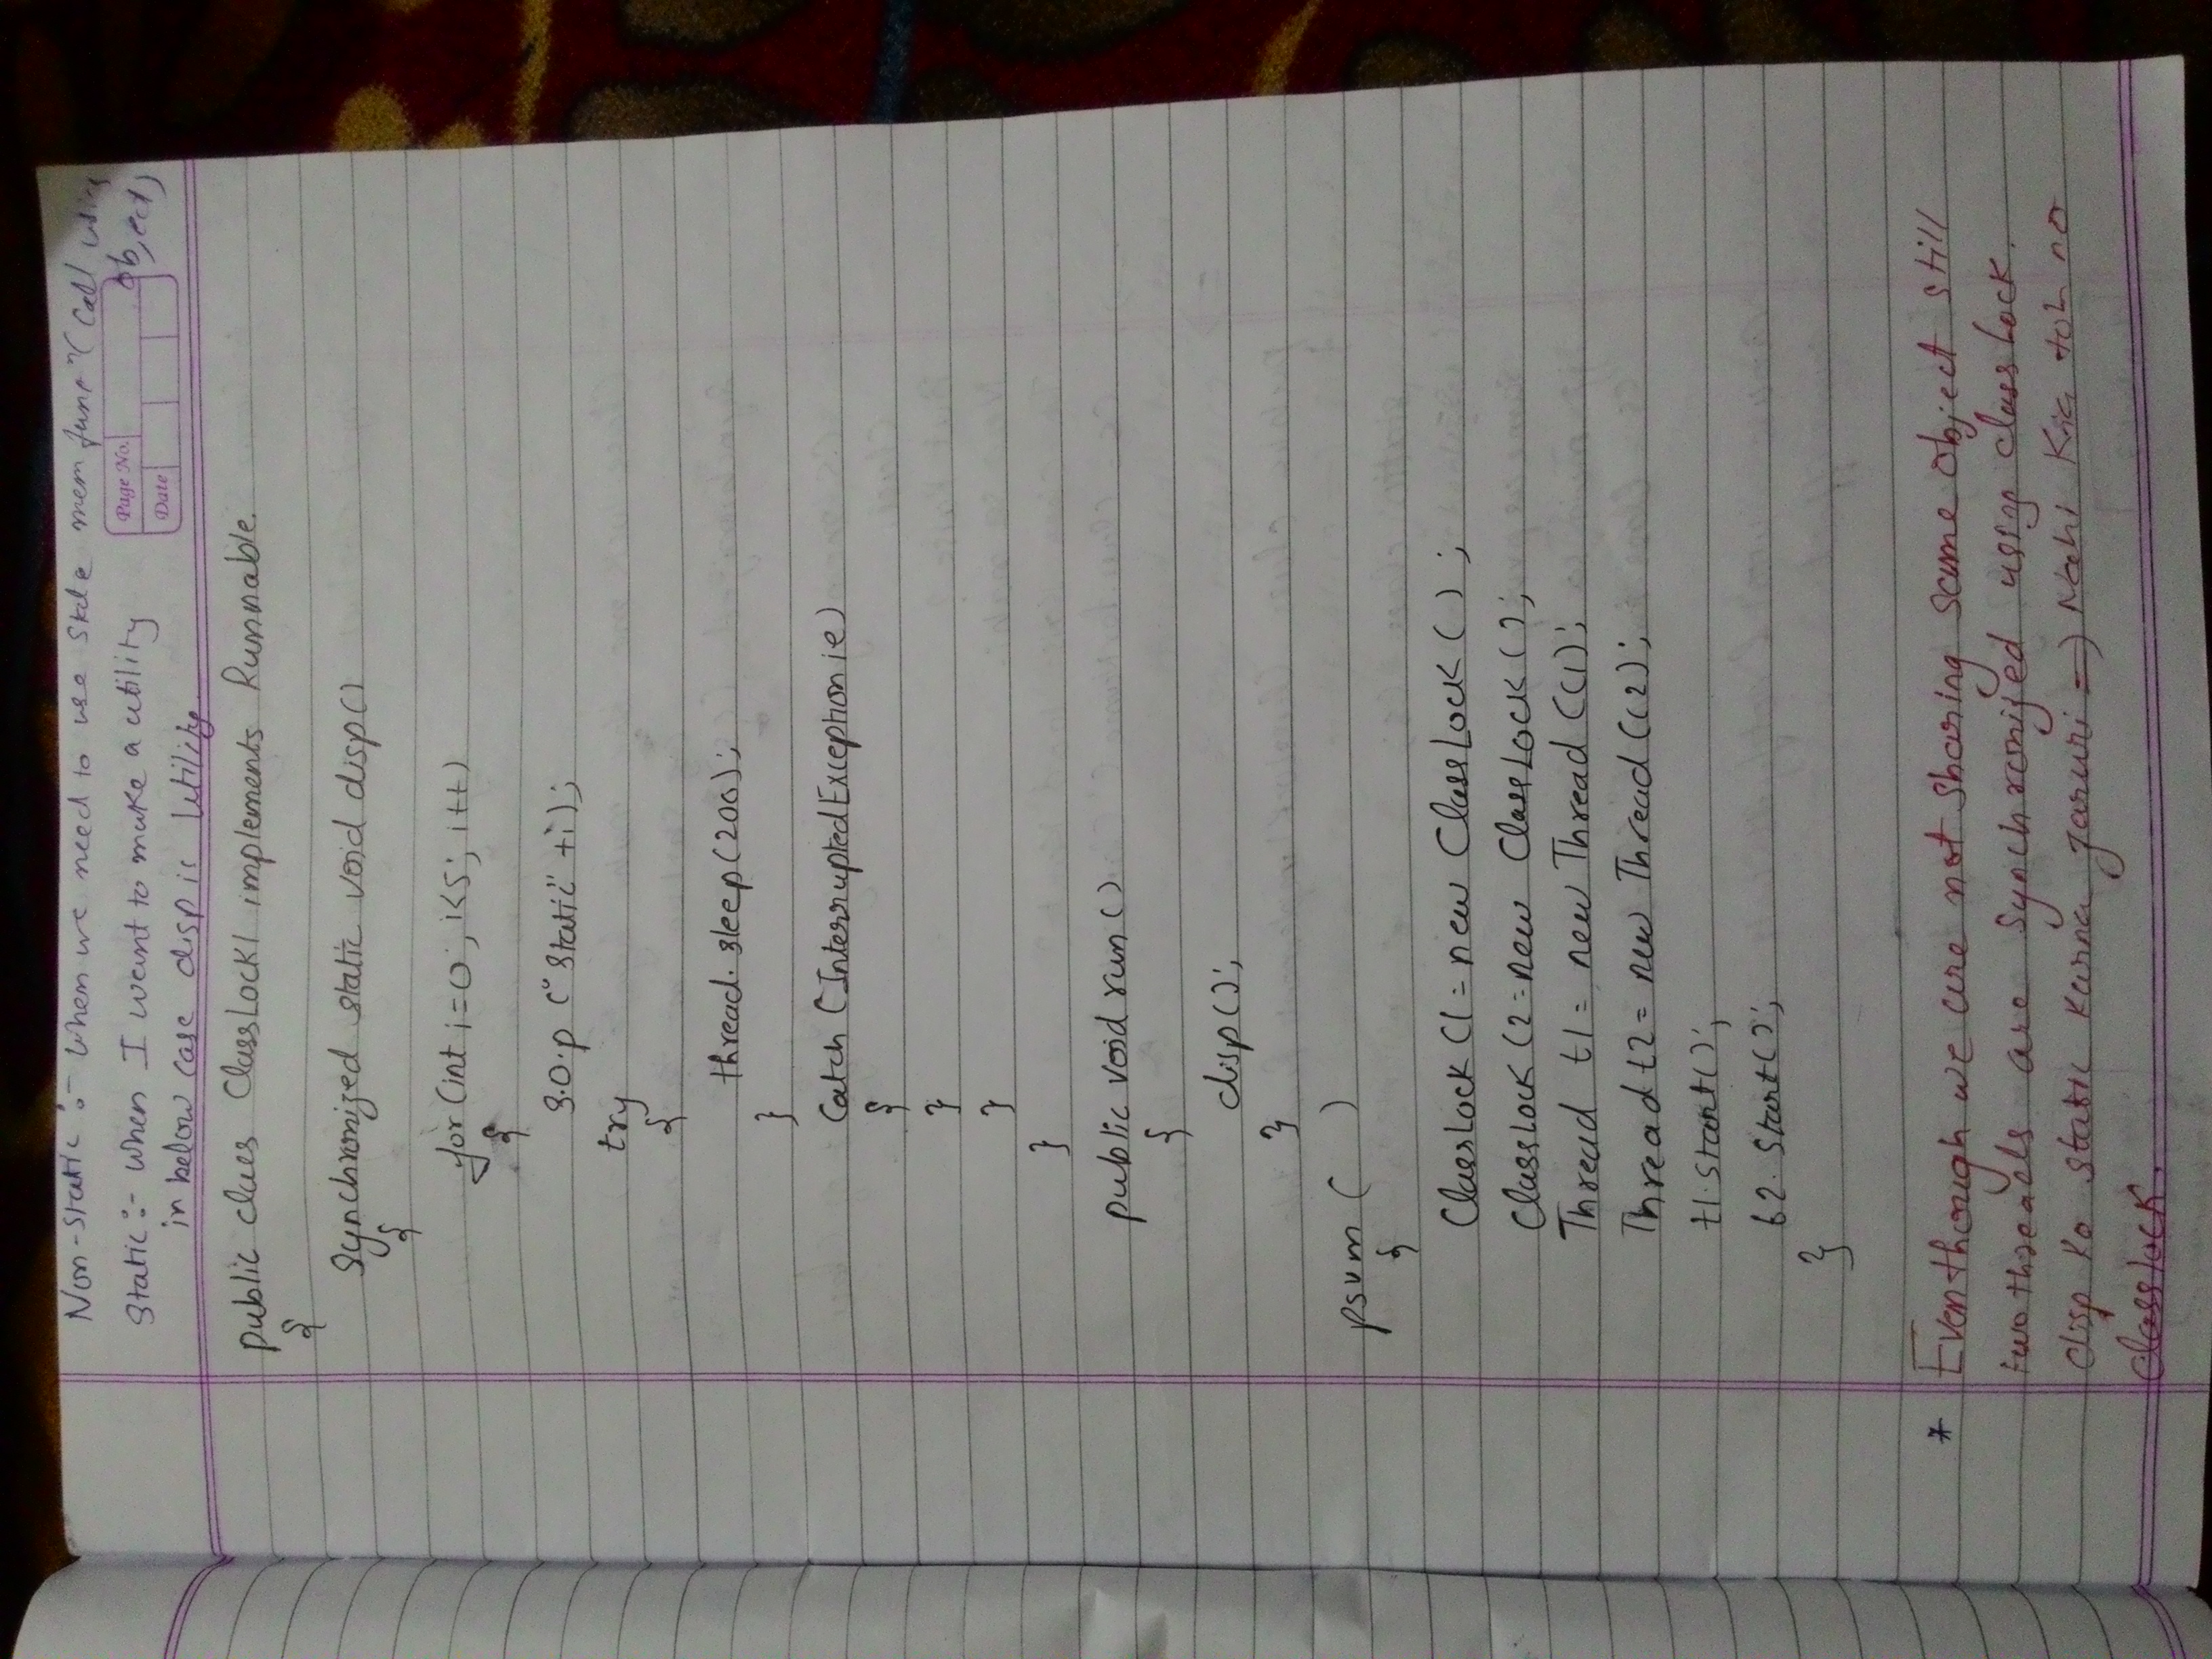 Non-static :- When we need to use State mem funcⁿ ( Call using
object)
Static :- When I want to make a utility
in below case disp is utility
Page No.
Date
public class ClassLock1 implements Runnable.
{
Synchronized static void disp()
{
for(int i=0; i<5; i++)
{
S.O.p ("Static" +i);
try
{
thread. sleep(200);
}
Catch (InterruptedException ie)
{
}
}
}
public void run()
{
disp();
}
psvm ( )
{
ClassLock C1 = new ClassLock ( ) ;
ClassLock C2 = new ClassLock ( );
Thread t1 = new Thread (C1);
Thread t2 = new Thread (C2);
t1. Start();
t2. Start();
}
* Eventhough we are not Sharing same object still
two threads are Synchronized using class lock.
disp ko static karna jaruri => Nahi Kia toh no
classlock.